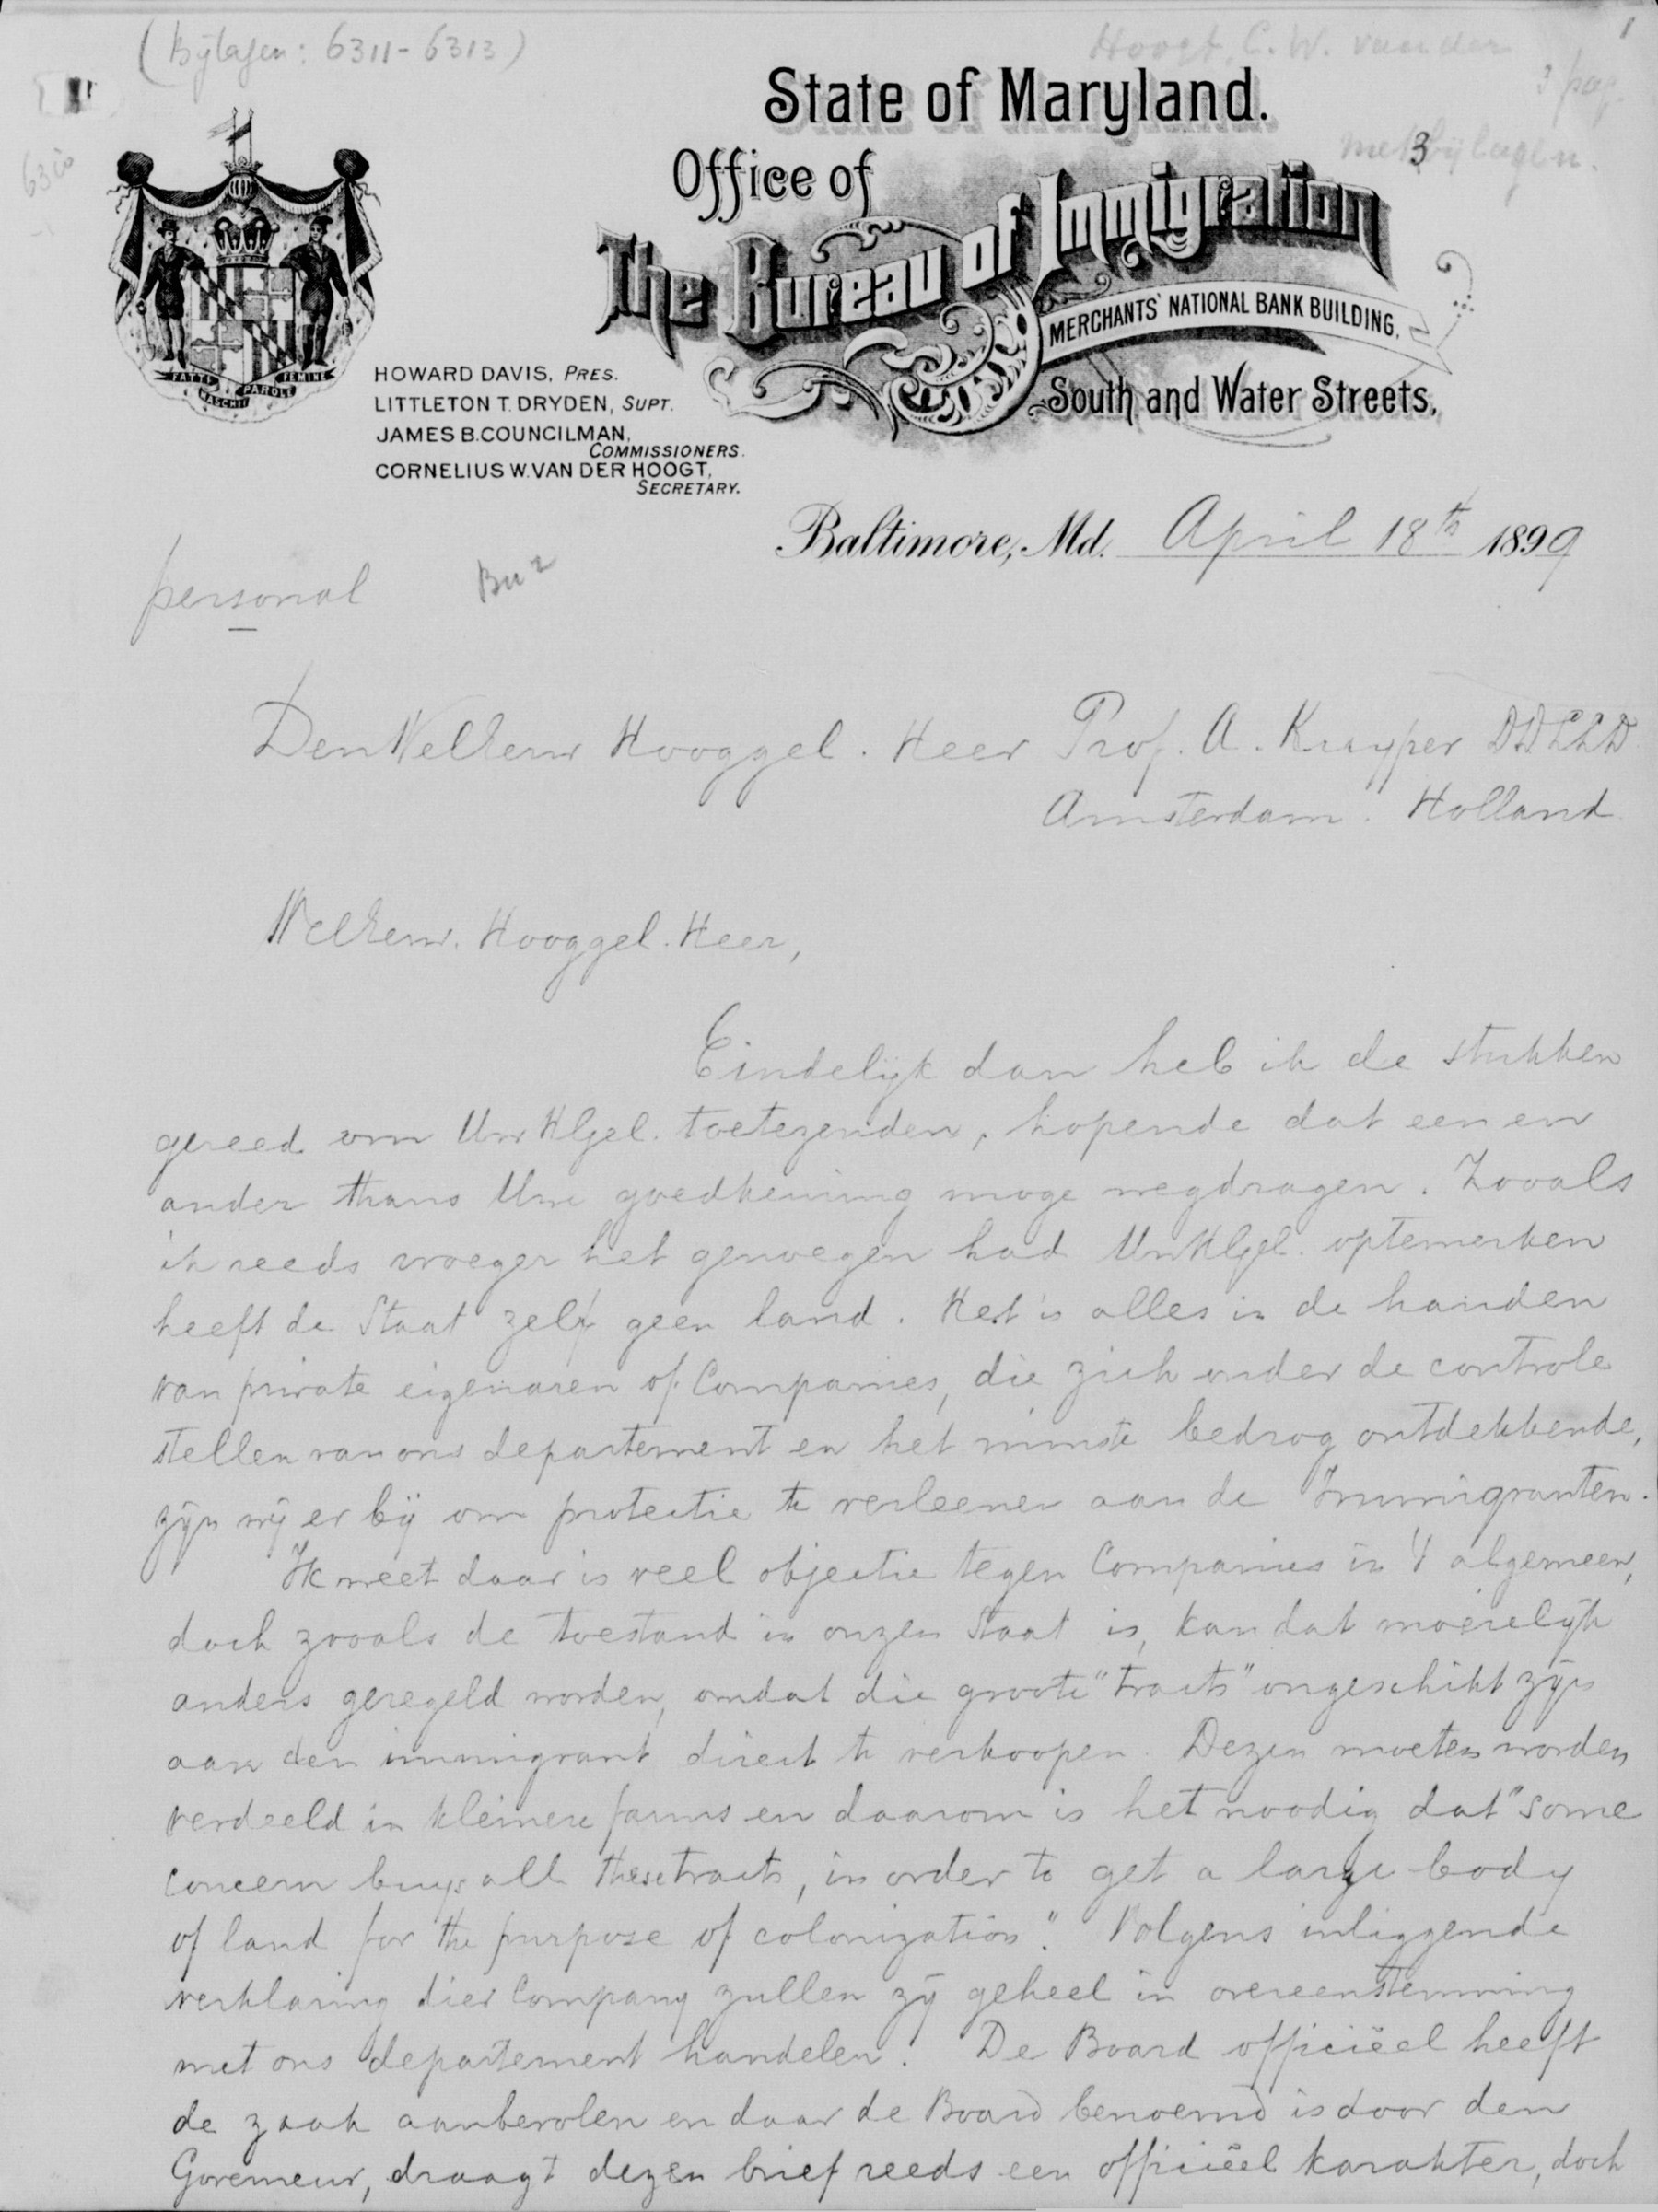 (Bijlagen: 6311-6313)
Hoogt, C. W. van der
1
3 pag.
met 3 bijlagen.
6310
State of Maryland.
Office of
The Bureau of Immigration
MERCHANTS' NATIONAL BANK BUILDING,
South and Water Streets,
FATTI MASCHII PAROLE FEMINE
HOWARD DAVIS, PRES.
LITTLETON T. DRYDEN, SUPT.
JAMES B. COUNCILMAN,
COMMISSIONERS.
CORNELIUS W. VAN DER HOOGT,
SECRETARY.
Baltimore, Md. April 18th 1899
personal
Den WelEerw Hooggel. Heer Prof. A. Kuyper DD LLD
Amsterdam. Holland
WelEerw. Hooggel. Heer,
Eindelijk dan heb ik de stukken
gereed om Uw HGel. toetezenden, hopende dat een en
ander thans Uw goedkeuring moge wegdragen. Zooals
ik reeds vroeger het genoegen had Uw HGel. optemerken
heeft de Staat zelf geen land. Het is alles in de handen
van private eigenaren of Companies, die zich onder de controle
stellen van ons departement en het minste bedrog ontdekkende,
zijn wij er bij om protectie te verleenen aan de Immigranten.
Ik weet daar is veel objectie tegen Companies in 't algemeen,
doch zooals de toestand in onzen Staat is, kan dat moeielijk
anders geregeld worden, omdat die groote "tracts" ongeschikt zijn
aan den immigrant direct te verkoopen. Dezen moeten worden
verdeeld in kleinere farms en daarom is het noodig dat "some
concern buys all these tracts, in order to get a large body
of land for the purpose of colonization". Volgens inliggende
verklaring dier Company zullen zij geheel in overeenstemming
met ons departement handelen. De Board officiëel heeft
de zaak aanbevolen en daar de Board benoemd is door den
Governeur, draagt dezen brief reeds een officiëel karakter, doch